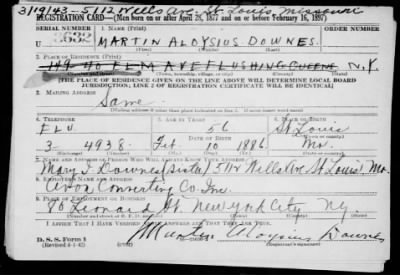 3/19/43 - 5112 Wells Ave. St. Louis, Missouri
REGISTRATION CARD—(Men born on or after April 28, 1877 and on or before February 16, 1897)
SERIAL NUMBER
1. NAME (Print)
ORDER NUMBER
U
MARTIN ALOYSIUS DOWNES.
(First) (Middle) (Last)
2. PLACE OF RESIDENCE (Print)
ELM AVE FLUSHING QUEENS N.Y.
(Number and street) (Town, township, village, or city) (County) (State)
[THE PLACE OF RESIDENCE GIVEN ON THE LINE ABOVE WILL DETERMINE LOCAL BOARD
JURISDICTION; LINE 2 OF REGISTRATION CERTIFICATE WILL BE IDENTICAL]
3. MAILING ADDRESS
Same.
[Mailing address if other than place indicated on line 2. If same insert word same]
4. TELEPHONE
5. AGE IN YEARS
6. PLACE OF BIRTH
FLU
56
St Louis
DATE OF BIRTH
3- 4938.
Feb. 10 1886.
Mo.
7. NAME AND ADDRESS OF PERSON WHO WILL ALWAYS KNOW YOUR ADDRESS
Mary I. Downes (Sister) 5114 Wells Ave St. Louis, Mo.
8. EMPLOYER'S NAME AND ADDRESS
Converting Co. Inc.
9. PLACE OF EMPLOYMENT OR BUSINESS
80 Leonard St New York City N.Y.
I AFFIRM THAT I HAVE VERIFIED ABOVE ANSWERS AND THAT THEY ARE TRUE.
D. S. S. Form 1
(Revised 4-1-42)
Martin Aloysius Downes